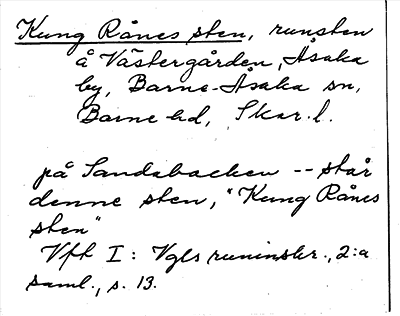 Kung Rånes sten, runsten
å Västergården, Åsaka
by, Barne-Åsaka sn,
Barne hd, Skar. l.
på Sandabacken -- står
denne sten, "Kung Rånes
sten"
Vft I: Vgls runinskr., 2:a
saml., s. 13.